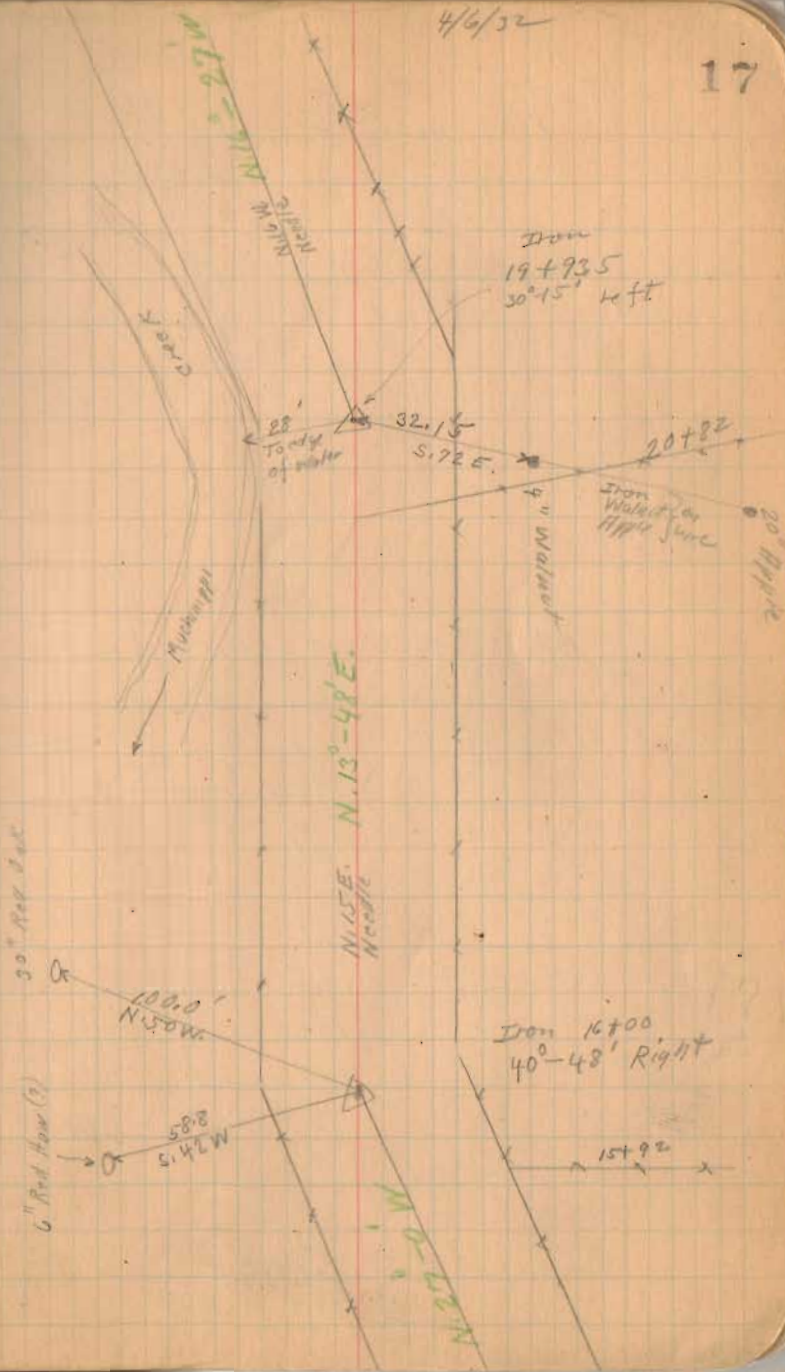 4/6/32
17
N.16°-27'W
N.16W.
Needle
Iron
19+93.5
30°-15' Left
Creek
28'
To edge
of water
32.15
S.72E.
20+82
Iron
Walnut on
Apple line
9" Walnut
20" Apple
N.13°-48'E.
N.15E.
Needle
30" Red Oak
100.0'
N.50W.
Iron 16+00
40°-48' Right
58.8
S.42W
6" Red Haw (?)
15+92
N.27°-0'W